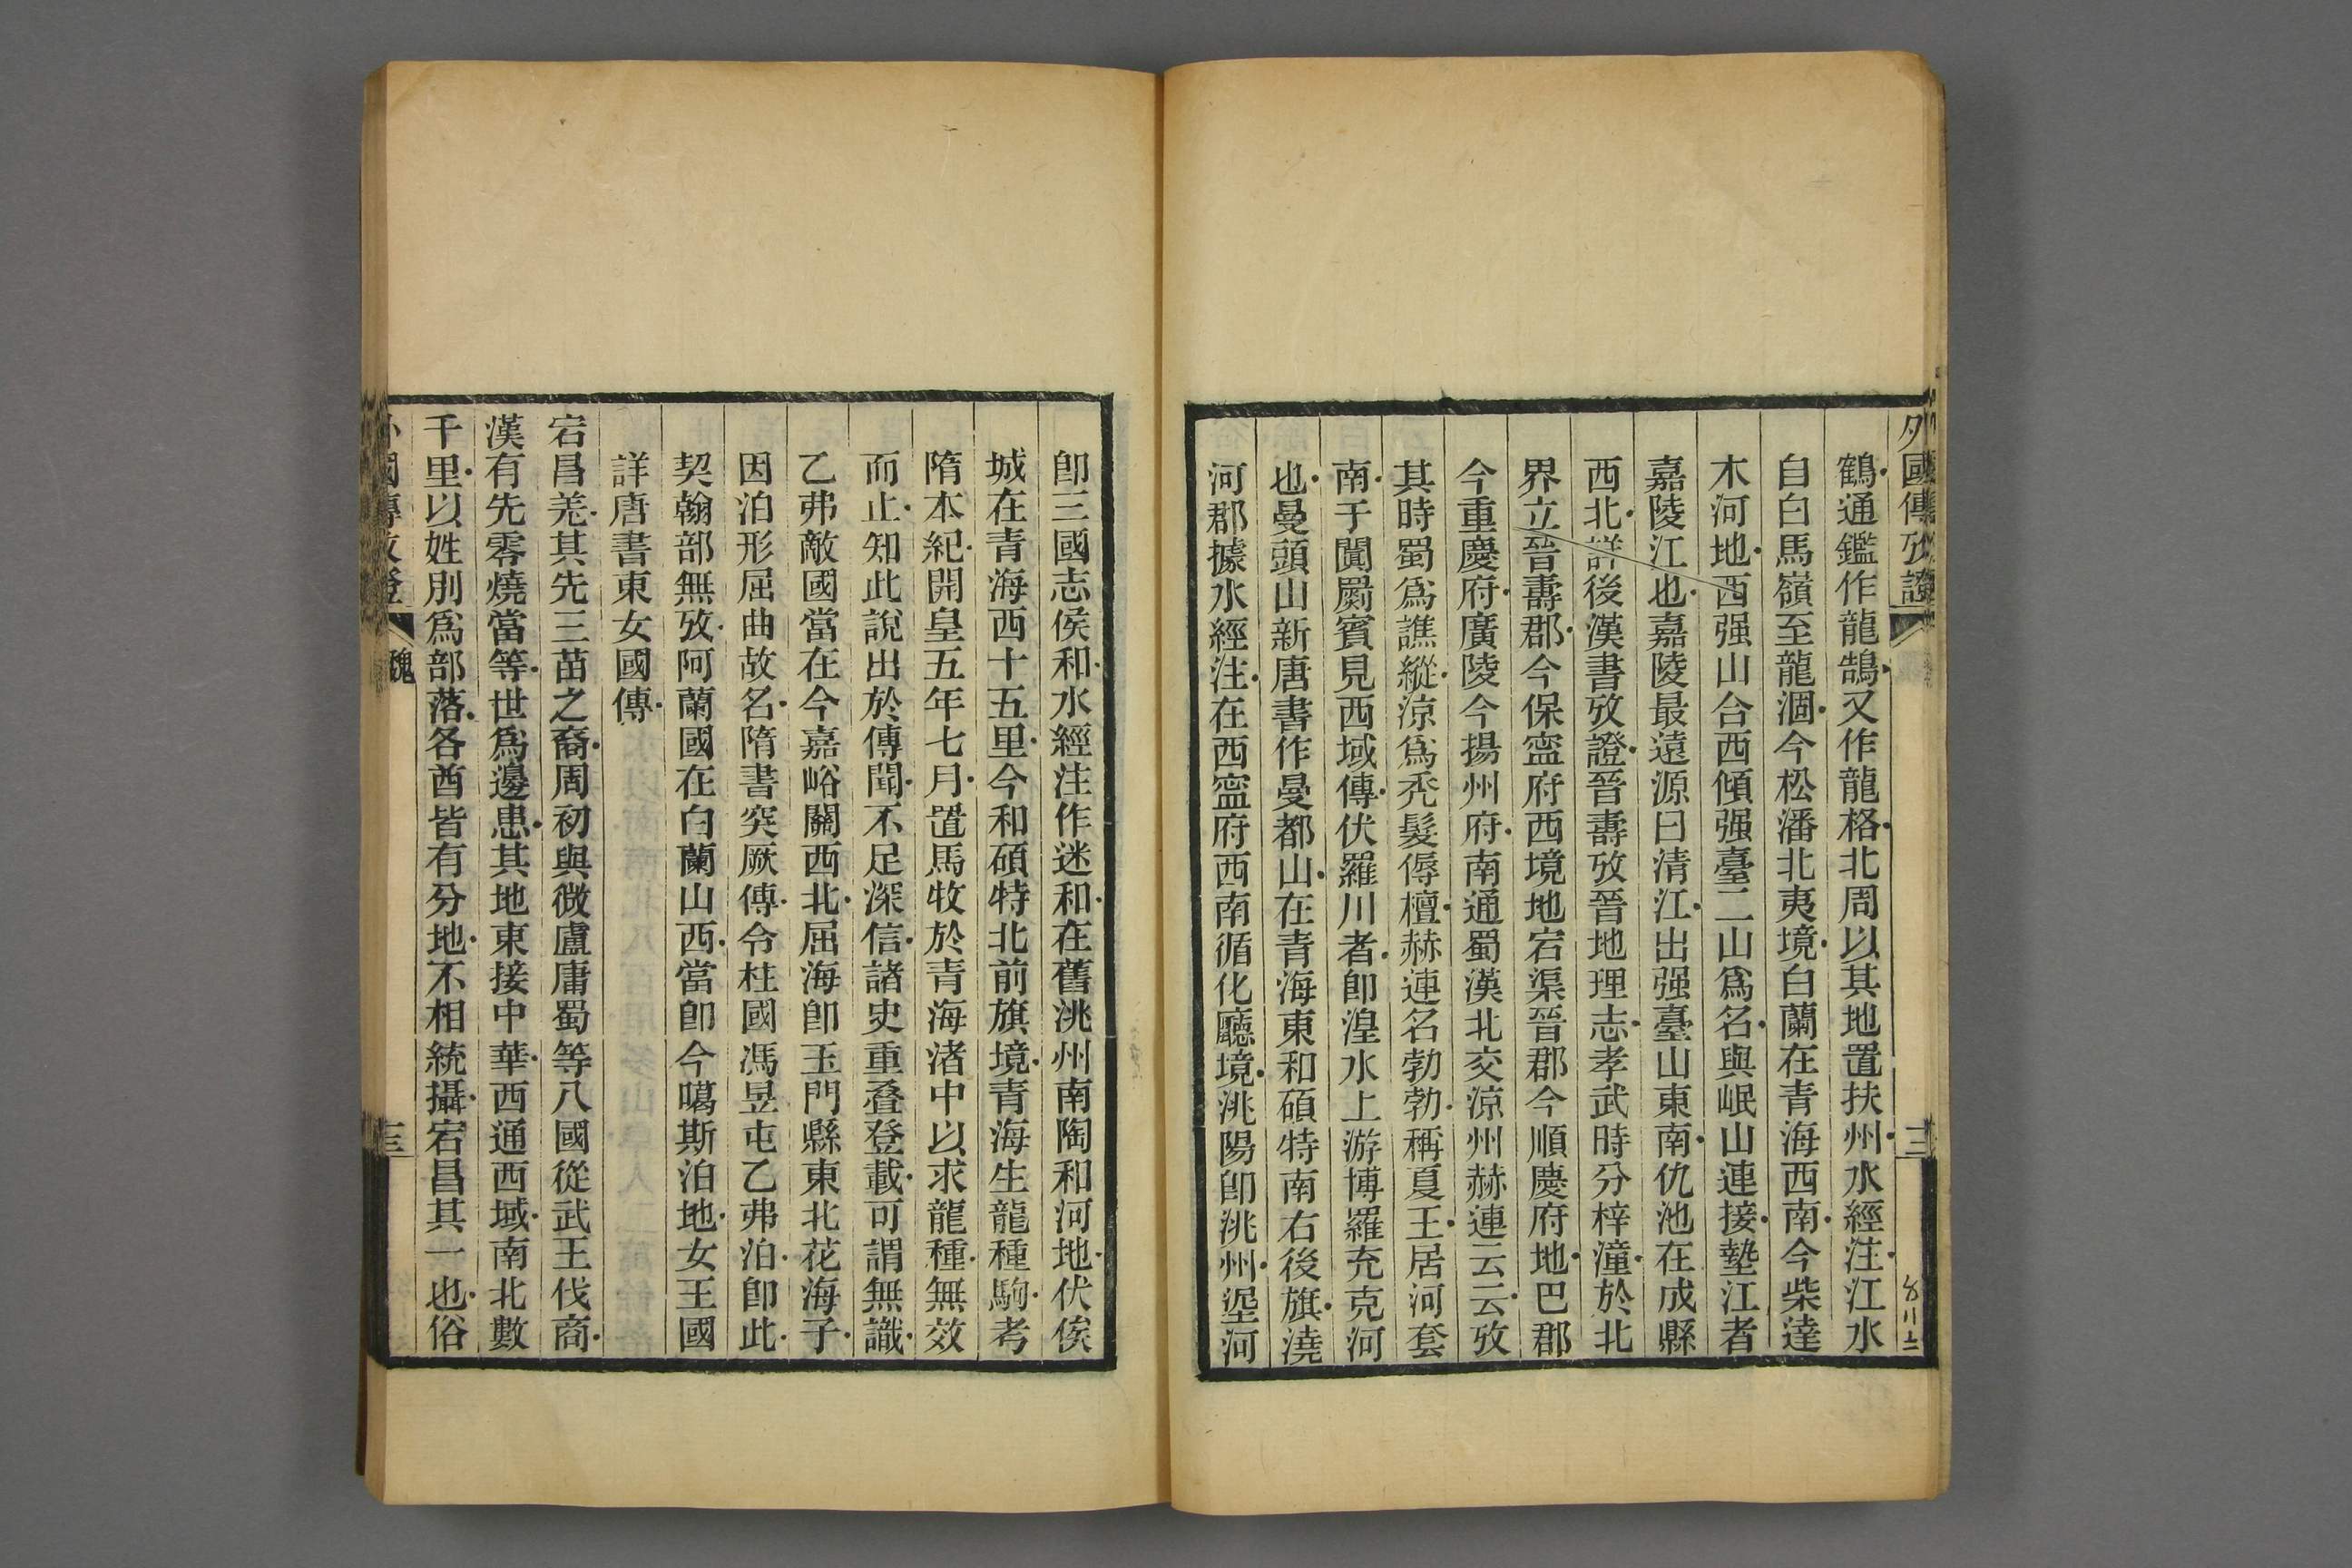 外國傳攷證
鶴通鑑作龍鵠又作龍格北周以其地置扶州水經注江水
自白馬嶺至龍涸今松潘北夷境白蘭在青海西南今柴達
木河地西强山合西傾强臺二山爲名與岷山連接墊江者
嘉陵江也嘉陵最遠源曰清江出强臺山東南仇池在成縣
西北詳後漢書攷證晉壽攷晉地理志孝武時分梓潼於北
界立晉壽郡今保寍府西境地宕渠晉郡今順慶府地巴郡
今重慶府廣陵今揚州府南通蜀漢北交涼州赫連云云攷
其時蜀爲譙縱涼爲禿髮傉檀赫連名勃勃稱夏王居河套
南于闐罽賓見西域傳伏羅川者卽湟水上游博羅充克河
也曼頭山新唐書作曼都山在青海東和碩特南右後旗澆
河郡據水經注在西寍府西南循化廳境洮陽卽洮州埿河
卽三國志侯和水經注作迷和在舊洮州南陶和河地伏俟
城在青海西十五里今和碩特北前旗境青海生龍種駒考
隋本紀開皇五年七月置馬牧於青海渚中以求龍種無效
而止知此說出於傳聞不足深信諸史重叠登載可謂無識
乙弗敵國當在今嘉峪關西北屈海卽玉門縣東北花海子
因泊形屈曲故名隋書突厥傳令柱國馮昱屯乙弗泊卽此
契翰部無攷阿蘭國在白蘭山西當卽今噶斯泊地女王國
詳唐書東女國傳
宕昌羌其先三苗之裔周初與微盧庸蜀等八國從武王伐商
漢有先零燒當等世爲邊患其地東接中華西通西域南北數
千里以姓別爲部落各酋皆有分地不相統攝宕昌其一也俗
國傳攷證
魏